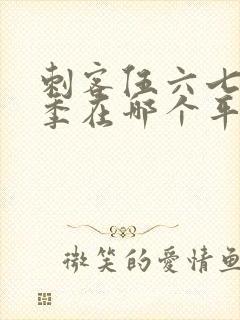 刺客伍六七
季在哪个平
微笑的爱情鱼